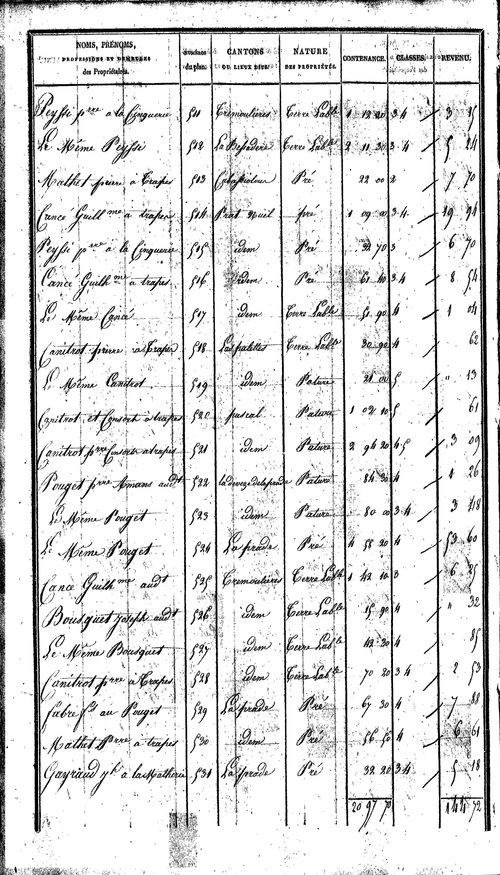 NOMS, PRÉNOMS, PROFESSIONS ET DEMEURES des Propriétaires. | du plan. | CANTONS OU LIEUX DITS. | NATURE DES PROPRIÉTÉS. | CONTENANCE. | CLASSES. | REVENU.
Peyssi pre à la Cinquerie 511 Tremoulieres Terre Lable 1 12 20 3 4 3 15
Le Même Peyssi 512 Terre Lable 2 11 30 3 4 5 24
Mathet pierre à Trapes 513 Pré 22 00 2 7 70
Cancé Guillme à trapes 514 Prat pré 1 09 3 4 19 94
Peyssi pre à la Cinquerie 515 idem Pré 70 3 6 70
Cancé Guilhme à trapes 516 idem Pré 61 40 3 4 8 54
Le Même Cancé 517 idem Terre Lable 51 90 4 1 04
Canitrot pierre à Trapes 518 Las palettes Terre Lable 30 90 4 62
Le Même Canitrot 519 idem Pature 21 00 5 " 13
Canitrot et Consorts à trapes 520 puscal Pature 1 02 10 5 61
Canitrot pre Consorts à trapes 521 idem Pature 2 94 20 4 5 3 09
Pouget pre Amans audt 522 la deveze de la prade Pature 84 30 4 1 26
Le Même Pouget 523 idem Pature 80 00 3 4 3 48
Le Même Pouget 524 La prade Pré 4 58 20 4 53 60
Cance Guilhme audt 525 Tremoulieres Terre Lable 1 42 10 3 6 25
Bousquet joseph audt 526 idem Terre Lable 15 90 4 " 32
Le Même Bousquet 527 idem Terre Lable 42 30 4 85
Canitrot pre à Trapes 528 idem Terre Lable 70 20 3 4 2 53
fabre fs au Pouget 529 La prade Pré 67 30 4 7 88
Mathet Pierre à trapes 530 idem Pré 56 50 4 6 61
Gayraud à la Matherie 531 La prade Pré 32 20 3 4 5 18
20 97 70 144 72